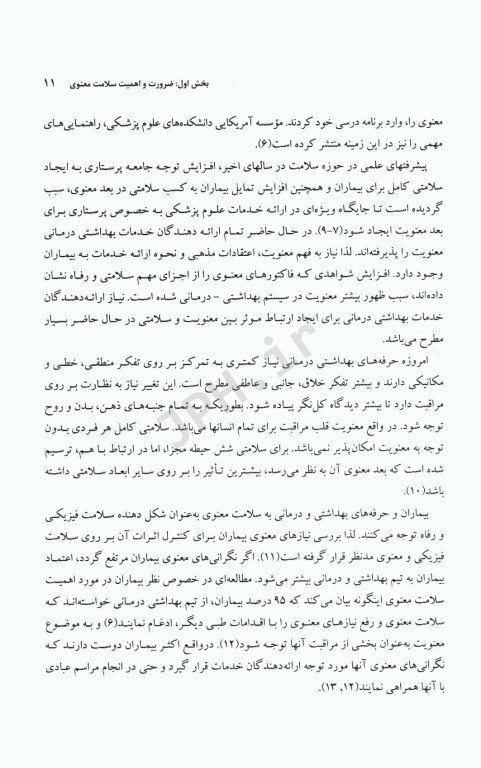 بخش اول: ضرورت و اهمیت سلامت معنوی ۱۱
معنوی را، وارد برنامه درسی خود کردند. مؤسسه آمریکایی دانشکده‌های علوم پزشکی، راهنمایی‌های
مهمی را نیز در این زمینه منتشر کرده است(۶).
پیشرفتهای علمی در حوزه سلامت در سالهای اخیر، افزایش توجه جامعه پرستاری به ایجاد
سلامتی کامل برای بیماران و همچنین افزایش تمایل بیماران به کسب سلامتی در بعد معنوی، سبب
گردیده است تا جایگاه ویژه‌ای در ارائه خدمات علوم پزشکی به خصوص پرستاری برای
بعد معنویت ایجاد شود(۷-۹). در حال حاضر تمام ارائه دهندگان خدمات بهداشتی درمانی
معنویت را پذیرفته‌اند. لذا نیاز به فهم معنویت، اعتقادات مذهبی و نحوه ارائه خدمات به بیماران
وجود دارد. افزایش شواهدی که فاکتورهای معنوی را از اجزای مهم سلامتی و رفاه نشان
داده‌اند، سبب ظهور بیشتر معنویت در سیستم بهداشتی - درمانی شده است. نیاز ارائه‌دهندگان
خدمات بهداشتی درمانی برای ایجاد ارتباط موثر بین معنویت و سلامتی در حال حاضر بسیار
مطرح می‌باشد.
امروزه حرفه‌های بهداشتی درمانی نیاز کمتری به تمرکز بر روی تفکر منطقی، خطی و
مکانیکی دارند و بیشتر تفکر خلاق، جانبی و عاطفی مطرح است. این تغییر نیاز به نظارت بر روی
مراقبت دارد تا بیشتر دیدگاه کل‌نگر پیاده شود. بطوریکه به تمام جنبه‌های ذهن، بدن و روح
توجه شود. در واقع معنویت قلب مراقبت برای تمام انسانها می‌باشد. سلامتی کامل هر فردی بدون
توجه به معنویت امکان‌پذیر نمی‌باشد. برای سلامتی شش حیطه مجزا، اما در ارتباط با هم، ترسیم
شده است که بعد معنوی آن به نظر می‌رسد، بیشترین تأثیر را بر روی سایر ابعاد سلامتی داشته
باشد(۱۰).
بیماران و حرفه‌های بهداشتی و درمانی به سلامت معنوی به‌عنوان شکل دهنده سلامت فیزیکی
و رفاه توجه می‌کنند. لذا بررسی نیازهای معنوی بیماران برای کنترل اثرات آن بر روی سلامت
فیزیکی و معنوی مدنظر قرار گرفته است(۱۱). اگر نگرانی‌های معنوی بیماران مرتفع گردد، اعتماد
بیماران به تیم بهداشتی و درمانی بیشتر می‌شود. مطالعه‌ای در خصوص نظر بیماران در مورد اهمیت
سلامت معنوی اینگونه بیان می‌کند که ۹۵ درصد بیماران، از تیم بهداشتی درمانی خواسته‌اند که
سلامت معنوی و رفع نیازهای معنوی را با اقدامات طبی دیگر، ادغام نمایند(۶) و به موضوع
معنویت به‌عنوان بخشی از مراقبت آنها توجه شود(۱۲). درواقع اکثر بیماران دوست دارند که
نگرانی‌های معنوی آنها مورد توجه ارائه‌دهندگان خدمات قرار گیرد و حتی در انجام مراسم عبادی
با آنها همراهی نمایند(۱۲, ۱۳).
JPH.ir